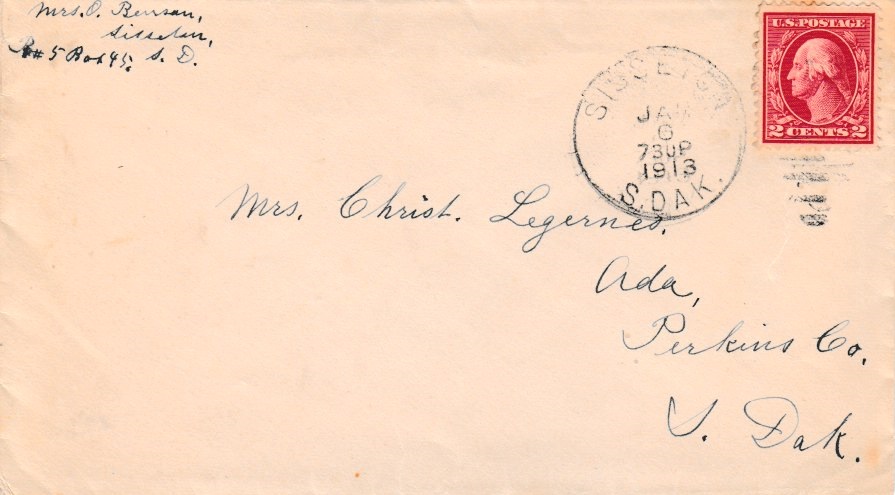 Mrs. O. Benson,
Sisseton,
R#5 Box 45. S. D.
U.S. POSTAGE
2 CENTS 2
SISSETON
JAN
6
730P
1913
S. DAK.
Mrs. Christ. Legernes,
Ada,
Perkins Co.
S. Dak.